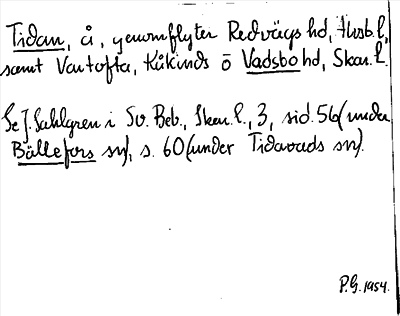 Tidan, å, genomflyter Redvägs hd, Älvsb. l,
samt Vartofta, Kåkinds o Vadsbo hd, Skar. l.
Se J. Sahlgren i Sv. Beb., Skar. l., 3, sid. 56 (under
Bällefors sn), s. 60 (under Tidavads sn).
P.G. 1954.